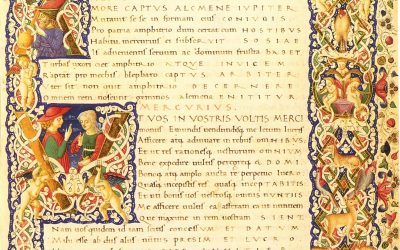 AMORE CAPTVS ALCMENE IVPITER
Mutauit se se in formam eius CONIVGIS
Pro patria amphitrio dum certat cum HOSTIBVS
Habitu mercurius ei subseruit SOSIAE
Is aduenientis seruum ac dominum frustra HABET
Turbas uxori ciet amphitrio ATQVE INVICEM
Raptat pro mechis blepharo captus ARBITER
Vter sit non quit amphitrio DECERNERE
Omnem rem noscunt geminos alcmena ENITITVR
MERCVRIVS
VT VOS IN VOSTRIS VOLTIS MERCI
moniis Emundis uendendisque me letum lucris
Afficere atque adiuuare in rebus OMNIBVS
Et ut res rationesque uostrorum OMNIVM
Bene expedire uultis peregreque & DOMI
Bonoque atque amplo auctu re perpetuo lucro
Quasque incepistis res quasque inceptabitis
Et uti bonis uos uostrosque omnis nuntiis
Me afficere uultis ea afferam ea ut nuntiem
Que maxime in rem uostram SIENT
Nam uos quidem id iam scitis concessum ET DATVM
Mi esse ab dis aliis nuntiis presim et LVCRO